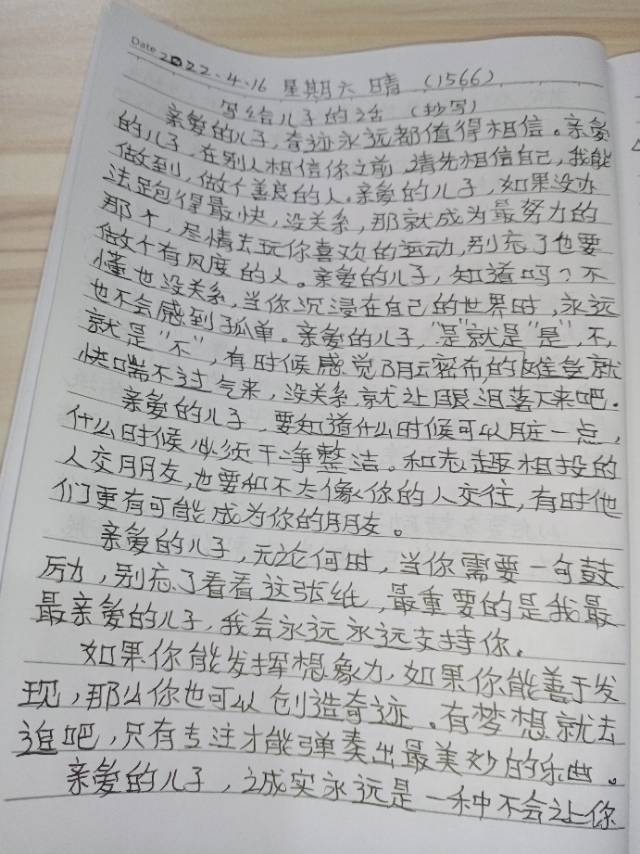 Date 2022.4.16 星期六 晴 (1566)
写给儿子的话 (抄写)
亲爱的儿子,奇迹永远都值得相信。亲爱
的儿子,在别人相信你之前,请先相信自己,我能
做到,做个善良的人。亲爱的儿子,如果没办
法跑得最快,没关系,那就成为最努力的
那个,尽情去玩你喜欢的运动,别忘了也要
做个有风度的人。亲爱的儿子,知道吗?不
懂也没关系,当你沉浸在自己的世界时,永远
也不会感到孤单。亲爱的儿子,"是"就是"是",不,
就是"不",有时候感觉乌云密布,的难受就
快喘不过气来,没关系,就让眼泪落下来吧。
亲爱的儿子,要知道什么时候可以脏一点,
什么时候必须干净整洁。和志趣相投的
人交朋友,也要和不太像你的人交往,有时他
们更有可能成为你的朋友。
亲爱的儿子,无论何时,当你需要一句鼓
励,别忘了看看这张纸,最重要的是我最
最亲爱的儿子,我会永远永远支持你。
如果你能发挥想象力,如果你能善于发
现,那么你也可以创造奇迹。有梦想就去
追吧,只有专注才能弹奏出最美妙的乐曲。
亲爱的儿子,诚实永远是一种不会让你